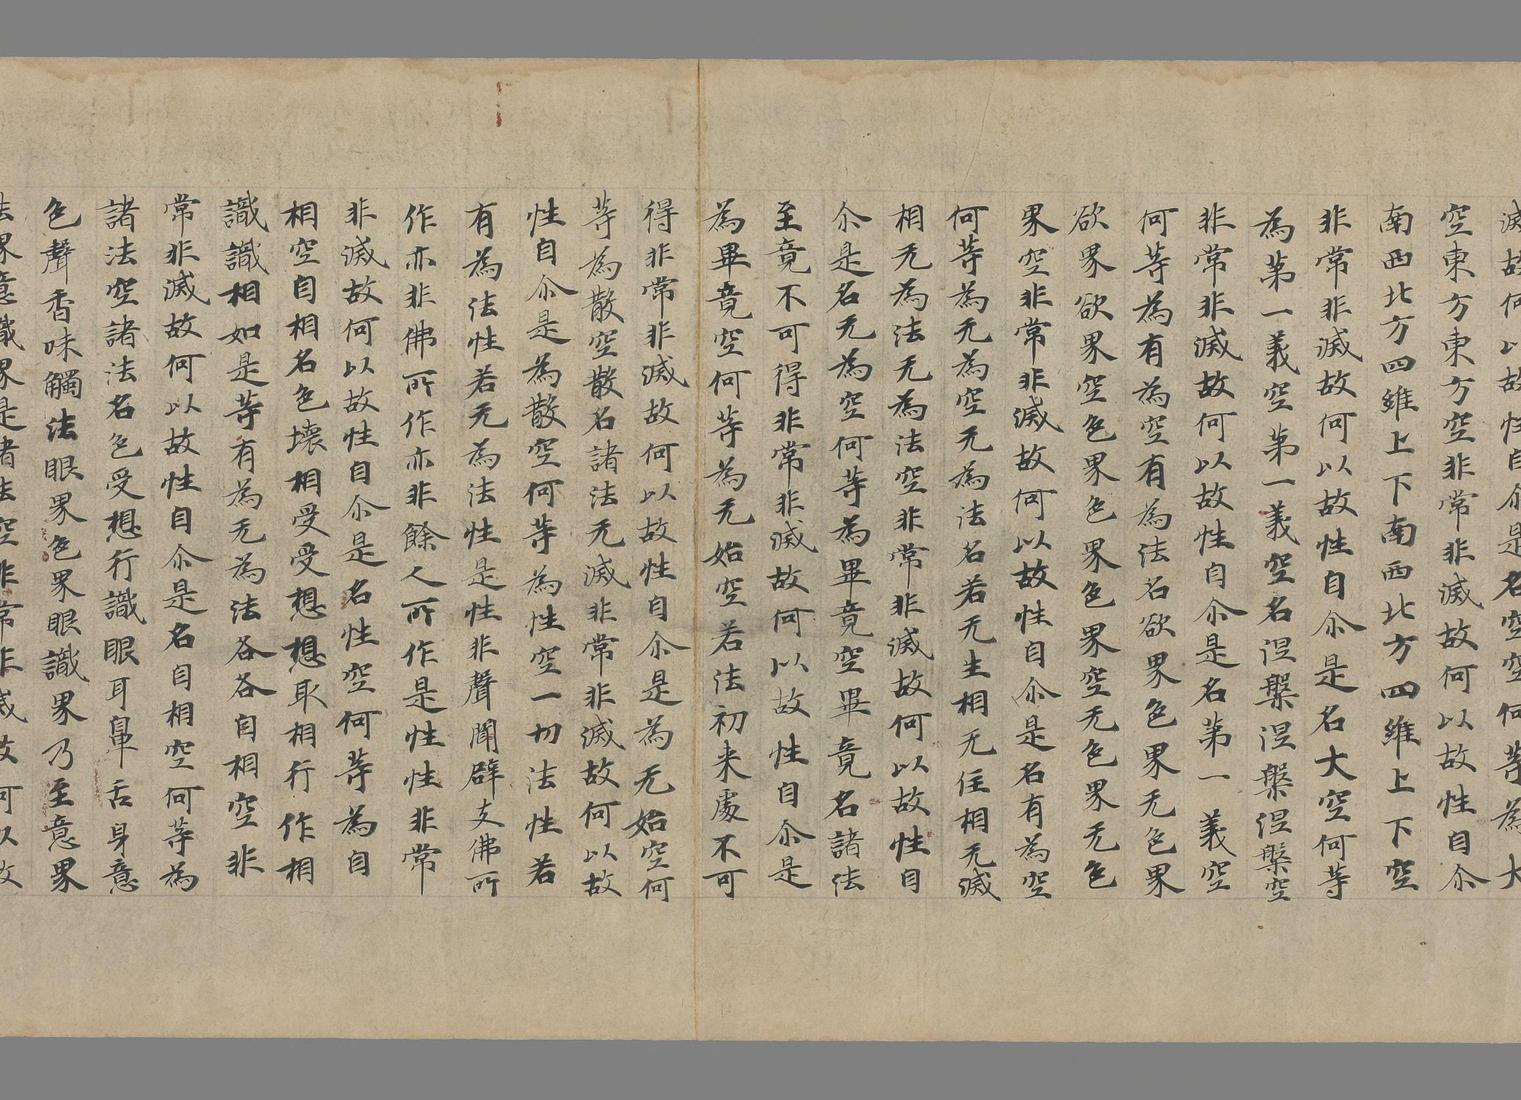 滅故何以故性自尒是名空空何等為大
空東方東方空非常非滅故何以故性自尒
南西北方四維上下南西北方四維上下空
非常非滅故何以故性自尒是名大空何等
為苐一義空苐一義空名涅槃涅槃涅槃空
非常非滅故何以故性自尒是名苐一義空
何等為有為空有為法名欲界色界无色界
欲界欲界空色界色界空无色界无色
界空非常非滅故何以故性自尒是名有為空
何等為无為空无為法名若无生相无住相无滅
相无為法无為法空非常非滅故何以故性自
尒是名无為空何等為畢竟空畢竟名諸法
至竟不可得非常非滅故何以故性自尒是
為畢竟空何等為无始空若法初来處不可
得非常非滅故何以故性自尒是為无始空何
等為散空散名諸法无滅非常非滅故何以故
性自尒是為散空何等為性空一切法性若
有為法性若无為法性是性非聲聞辟支佛所
作亦非佛所作亦非餘人所作是性性非常
非滅故何以故性自尒是名性空何等為自
相空自相名色壞相受受想想取相行作相
識識相如是等有為无為法各各自相空非
常非滅故何以故性自尒是名自相空何等為
諸法空諸法名色受想行識眼耳鼻舌身意
色聲香味觸法眼界色界眼識界乃至意界
法界意識界是諸法空非常非滅故何以故